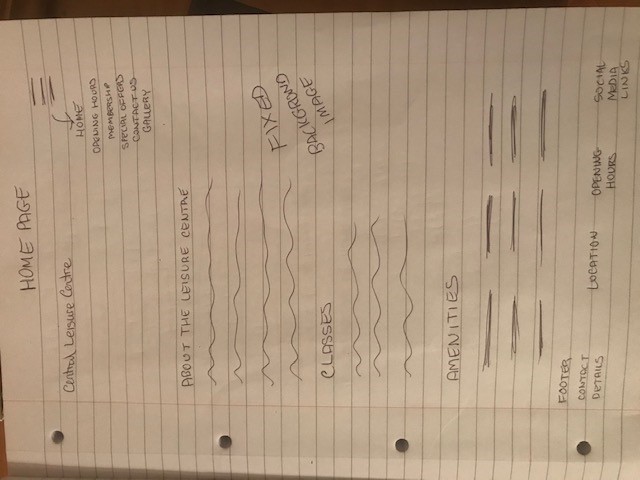 HOME PAGE
Central Leisure Centre
HOME
OPENING HOURS
MEMBERSHIP
SPECIAL OFFERS
CONTACT US
GALLERY
ABOUT THE LEISURE CENTRE
FIXED
BACKGROND
IMAGE
CLASSES
AMENITIES
FOOTER
CONTACT
DETAILS
LOCATION
OPENING
HOURS
SOCIAL
MEDIA
LINKS